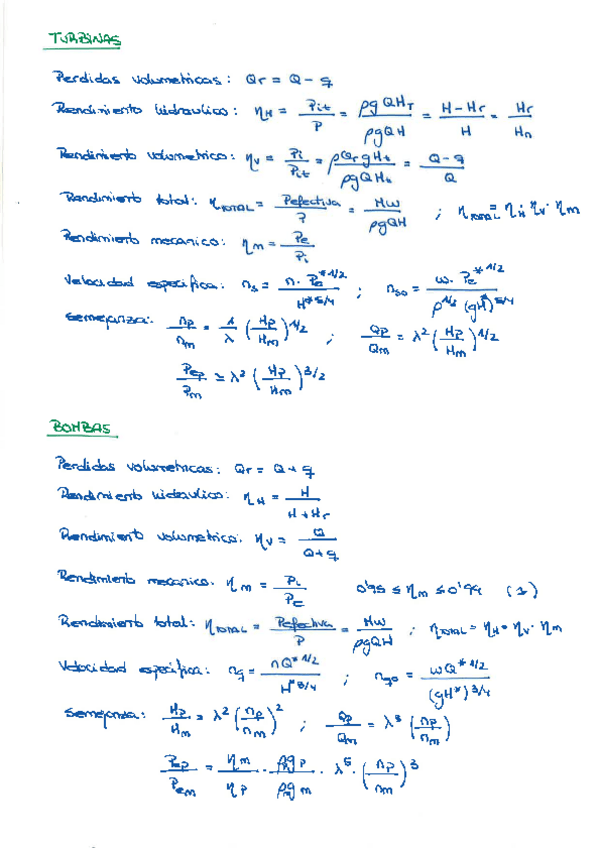 TURBINAS
Perdidas volumetricas: Qr = Q - q
Rendimiento hidraulico: ηH = Pit/P = ρgQHT/ρgQH = H-Hr/H = Hr/Hn
Rendimiento volumetrico: ηv = Pi/Pit = ρQrgHt/ρgQHt = Q-q/Q
Rendimiento total: ηTOTAL = Pefectiva/P = Mw/ρgQH ; ηTOTAL = ηH · ηv · ηm
Rendimiento mecanico: ηm = Pe/Pi
Velocidad especifica: ns = n·Pe*^1/2/H*^5/4 ; nso = w·Pe*^1/2/ρ^1/2 (gH*)^5/4
Semejanza: np/nm = 1/λ (Hp/Hm)^1/2 ; Qp/Qm = λ^2 (Hp/Hm)^1/2
Pep/Pm = λ^2 (Hp/Hm)^3/2
BOMBAS
Perdidas volumetricas: Qr = Q + q
Rendimiento hidraulico: ηH = H/H+Hr
Rendimiento volumetrico: ηv = Q/Q+q
Rendimiento mecanico: ηm = Pi/Pe 0'95 ≤ ηm ≤ 0'99 (1)
Rendimiento total: ηTOTAL = Pefectiva/P = Mw/ρgQH ; ηTOTAL = ηH · ηv · ηm
Velocidad especifica: nq = nQ*^1/2/H*^3/4 ; nqo = wQ*^1/2/(gH*)^3/4
Semejanza: Hp/Hm = λ^2 (np/nm)^2 ; Qp/Qm = λ^3 (np/nm)
Pep/Pem = ηm/ηp · ρgp/ρgm · λ^5 · (np/nm)^3